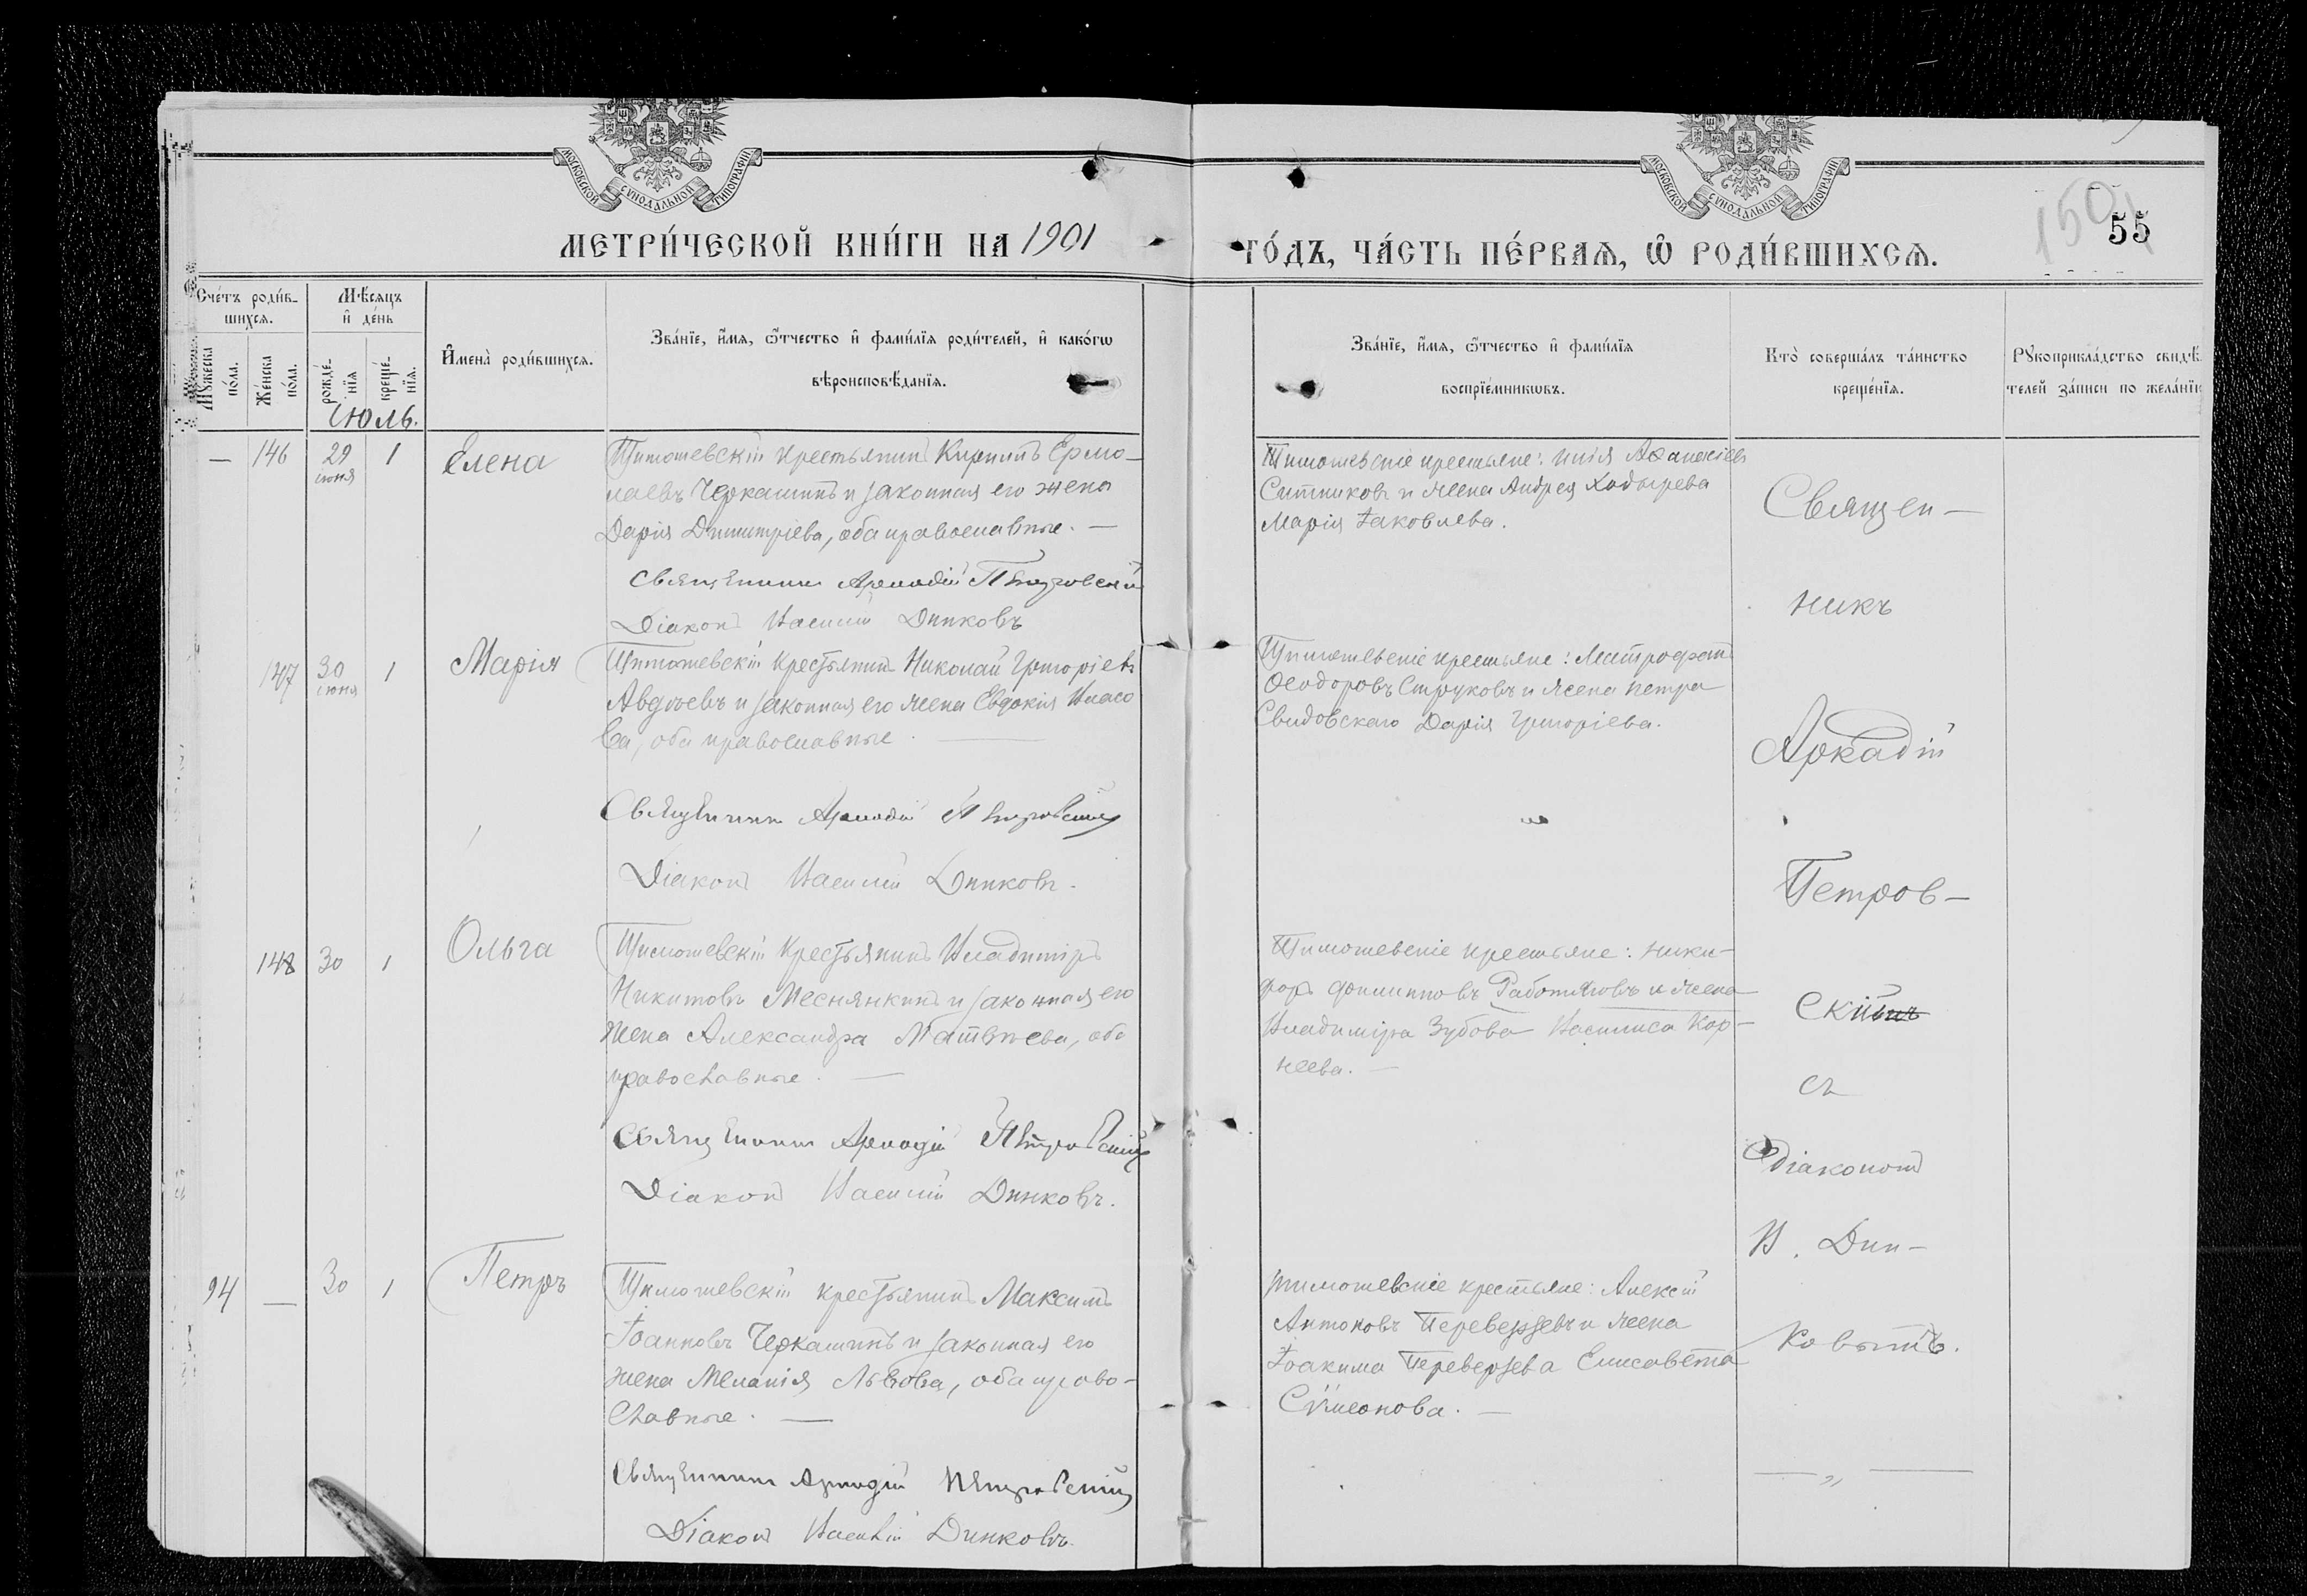 МОСКОВСКОЙ СѴНОДАЛЬНОЙ ТИПОГРАФІИ
МОСКОВСКОЙ СѴНОДАЛЬНОЙ ТИПОГРАФІИ
150
55
МЕТРИ́ЧЕСКОЙ КНИ́ГИ НА 1901
ГО́ДЪ, ЧА́СТЬ ПЕ́РВАѦ, Ѡ҆ РОДИ́ВШИХСѦ.
Сче́тъ роди́в-
шихсѧ.
Мѣ́сѧцъ
и҆ де́нь
Мꙋ́жеска
по́ла.
Же́нска
по́ла.
рожде́-
нїѧ
креще́-
нїѧ.
И҆мена̀ роди́вшихсѧ.
Зва́нїе, и҆́мѧ, ѻ҆́тчество и҆ фами́лїѧ роди́телей, и҆ како́гѡ
вѣроисповѣ́данїѧ.
Зва́нїе, и҆́мѧ, ѻ҆́тчество и҆ фами́лїѧ
воспрїе́мникѡвъ.
Кто̀ соверша́лъ та́инство
креще́нїѧ.
Рꙋкоприкла́дство свидѣ́-
телей за́писи по жела́нїю
Іюль.
— 146 29 іюня 1 Елена
Тимошевскій крестьянинъ Кириллъ Ермо-
лаевъ Черкашинъ и законная его жена
Дарія Димитріева, оба православные. —
Священникъ Аркадій Петровскій
Діаконъ Василій Динковъ
Тимошевскіе крестьяне: Илія Аѳанасіевъ
Ситниковъ и жена Андрея Ходырева
Марія Іаковлева.
147 30 іюня 1 Марія
Тимошевскій крестьянинъ Николай Григоріевъ
Авдѣевъ и законная его жена Евдокія Власо
ва, оба православные. —
Священникъ Аркадій Петровскій
Діаконъ Василій Динковъ.
Тимошевскіе крестьяне: Митрофанъ
Ѳеодоровъ Струковъ и жена Петра
Свидовскаго Дарія Григоріева.
148 30 1 Ольга
Тимошевскій крестьянинъ Владиміръ
Никитовъ Меснянкинъ и законная его
жена Александра Матвѣева, оба
православные. —
Священникъ Аркадій Петровскій
Діаконъ Василій Динковъ.
Тимошевскіе крестьяне: Ники-
форъ Филипповъ Работяговъ и жена
Владиміра Зубова Василиса Кор-
неева. —
94 — 30 1 Петръ
Тимошевскій крестьянинъ Максимъ
Іоанновъ Черкашинъ и законная его
жена Меланія Львова, оба право-
славные. —
Священникъ Аркадій Петровскій
Діаконъ Василій Динковъ.
Тимошевскіе крестьяне: Алексій
Антоновъ Переверзевъ и жена
Іоакима Переверзева Елисавета
Сѵмеонова. —
Священ-
никъ
Аркадій
Петров-
скій
съ
діакономъ
В. Дин-
ковымъ.
— „ —